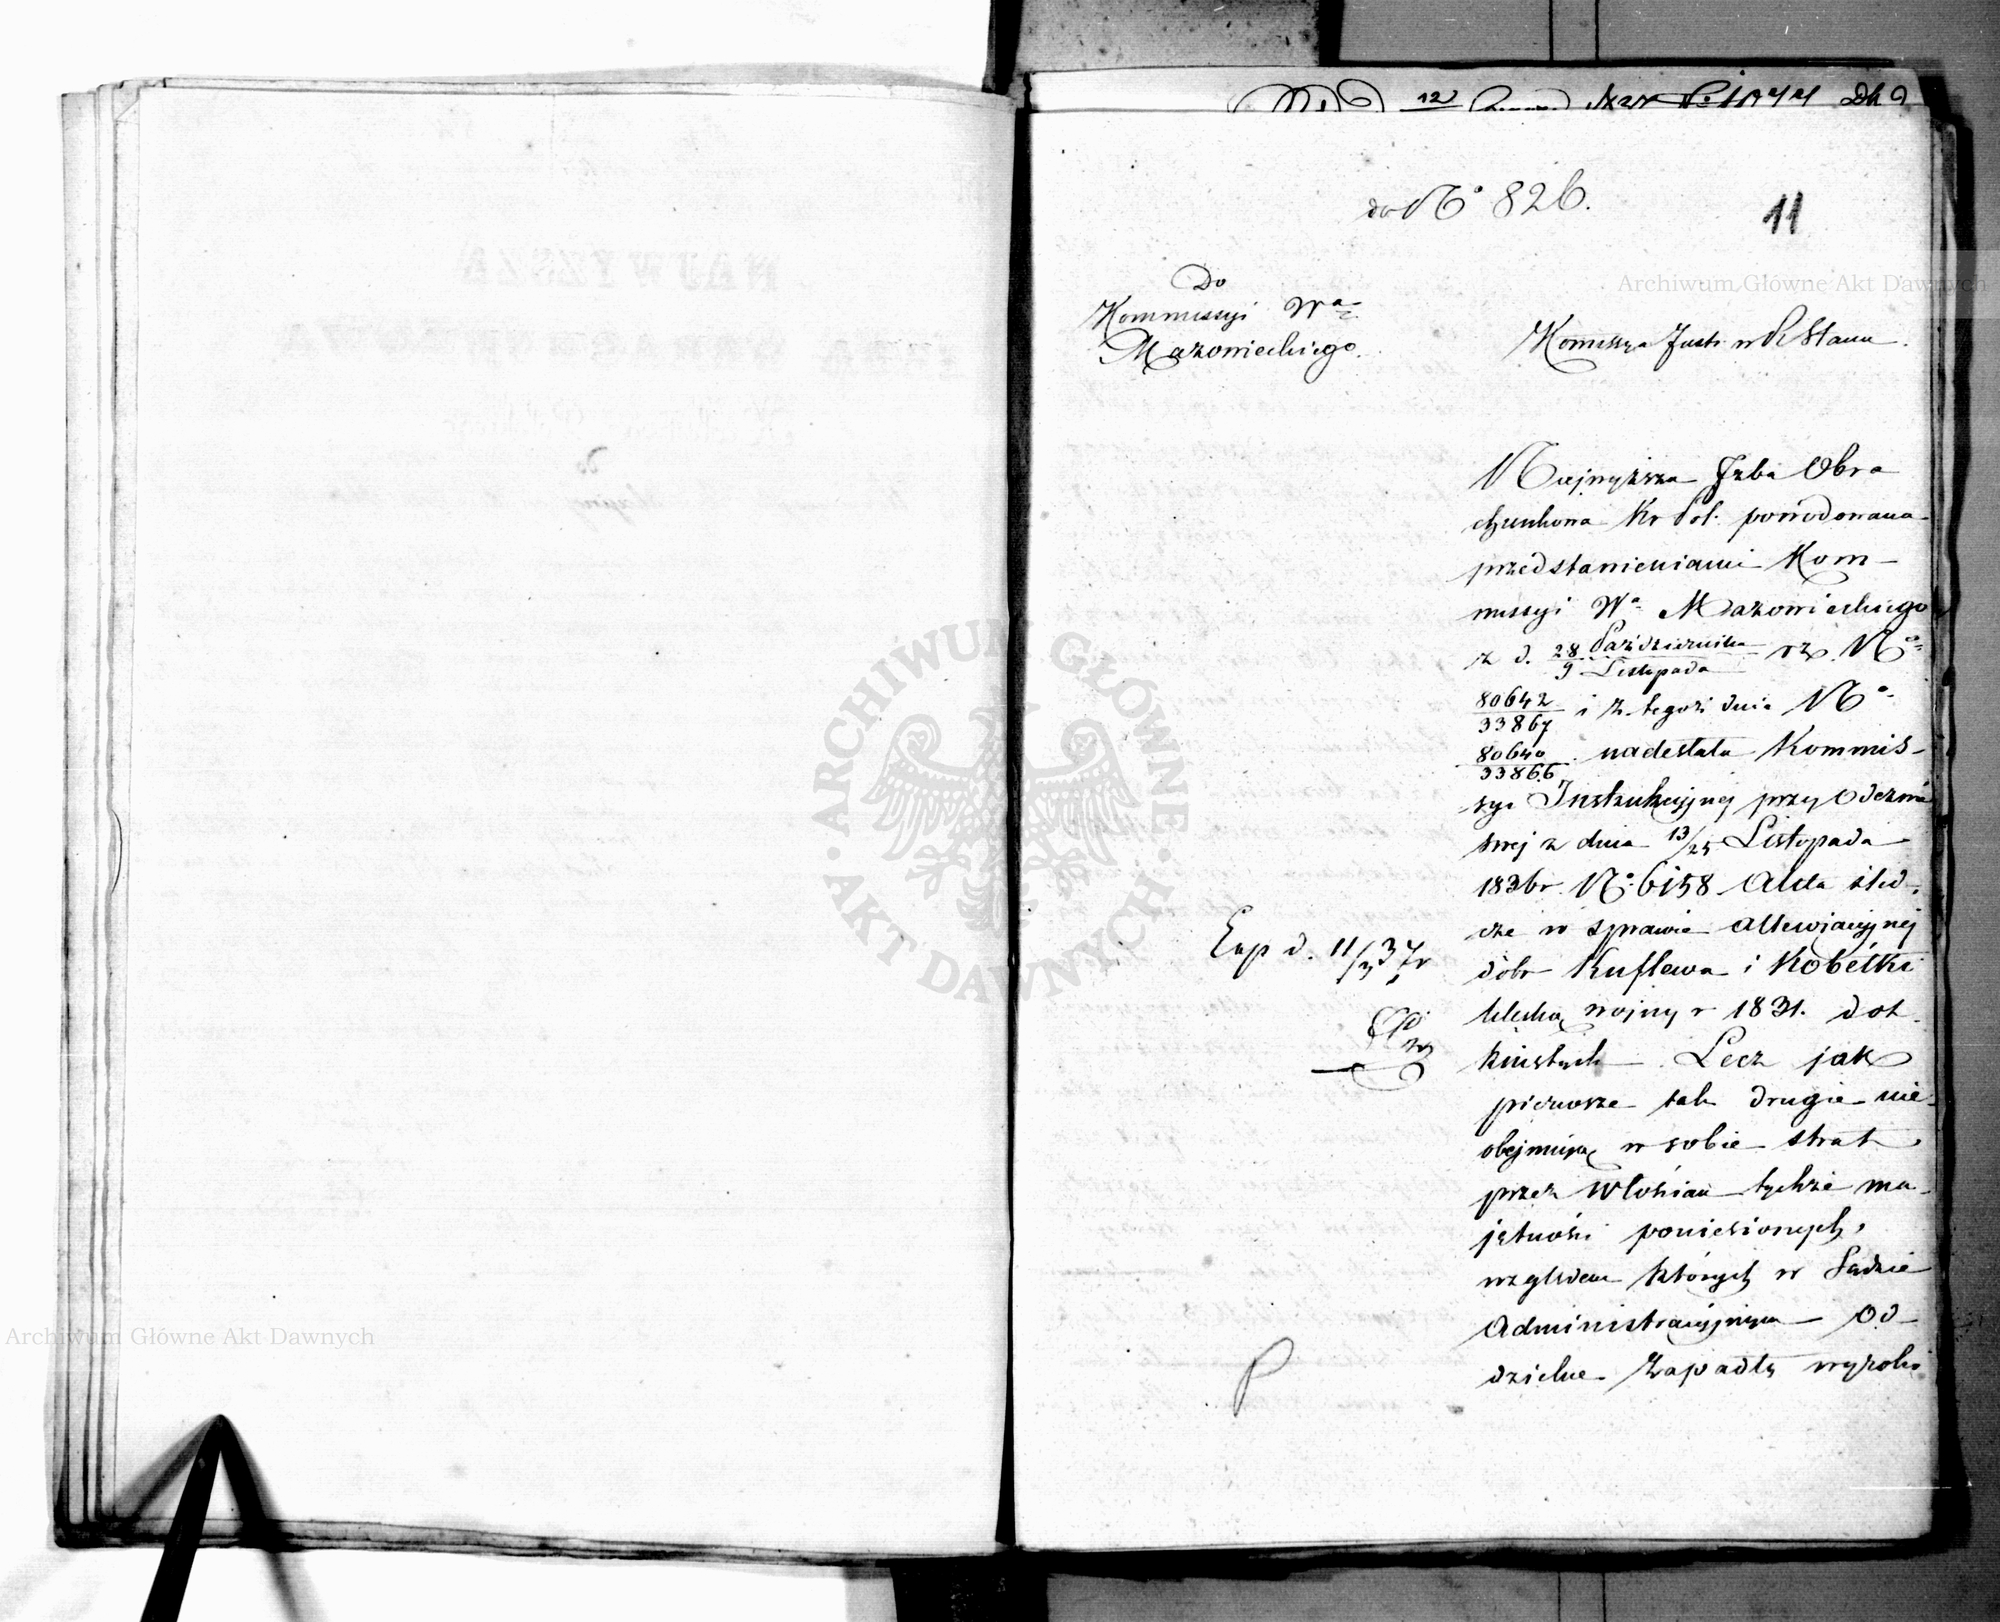 do No 826.
11
Do
Kommissyi Wa
Mazowieckiego.
Komissya Instr. w R Stanu.
Najwyższa Izba Obra
chunkowa Kr Pol. powodowana
przedstawieniami Kom-
missyi Wa Mazowieckiego
z d. 28 Października / 9 Listopada rz. No
80642/33867 i z tegoż dnia No
80640/33866 nadesłała Kommis-
syi Instrukcyjnej przy Odezwie
swej z dnia 13/25 Listopada
1836r. No 6158 Akta śled-
cze w sprawie Allewiacyjnej
dobr Kuflewa i Kobiełki
klęską wojny r 1831. dot-
kniętych. Lecz jak
pierwsze tak drugie nie-
obejmują w sobie strat
przez Włościan tychże ma-
jętności poniesionych,
względem których w Sądzie
Administracyjnym od-
dzielne zapadły wyroki
Exp d. 11/3 37r
Archiwum Główne Akt Dawnych
Archiwum Główne Akt Dawnych
ARCHIWUM GŁÓWNE
AKT DAWNYCH